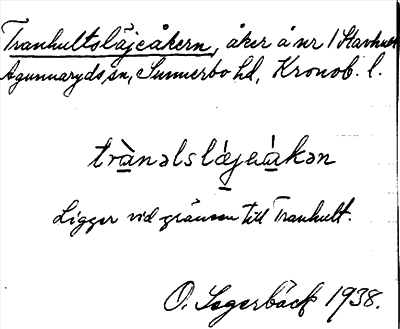 Tranhultsläjeåkern, åker å nr 1 Stavhult
Agunnaryds sn, Sunnerbo hd, Kronob. l.
trànəlslǽjeákən
Ligger vid gränsen till Tranhult.
O. Sagerbäck 1938.